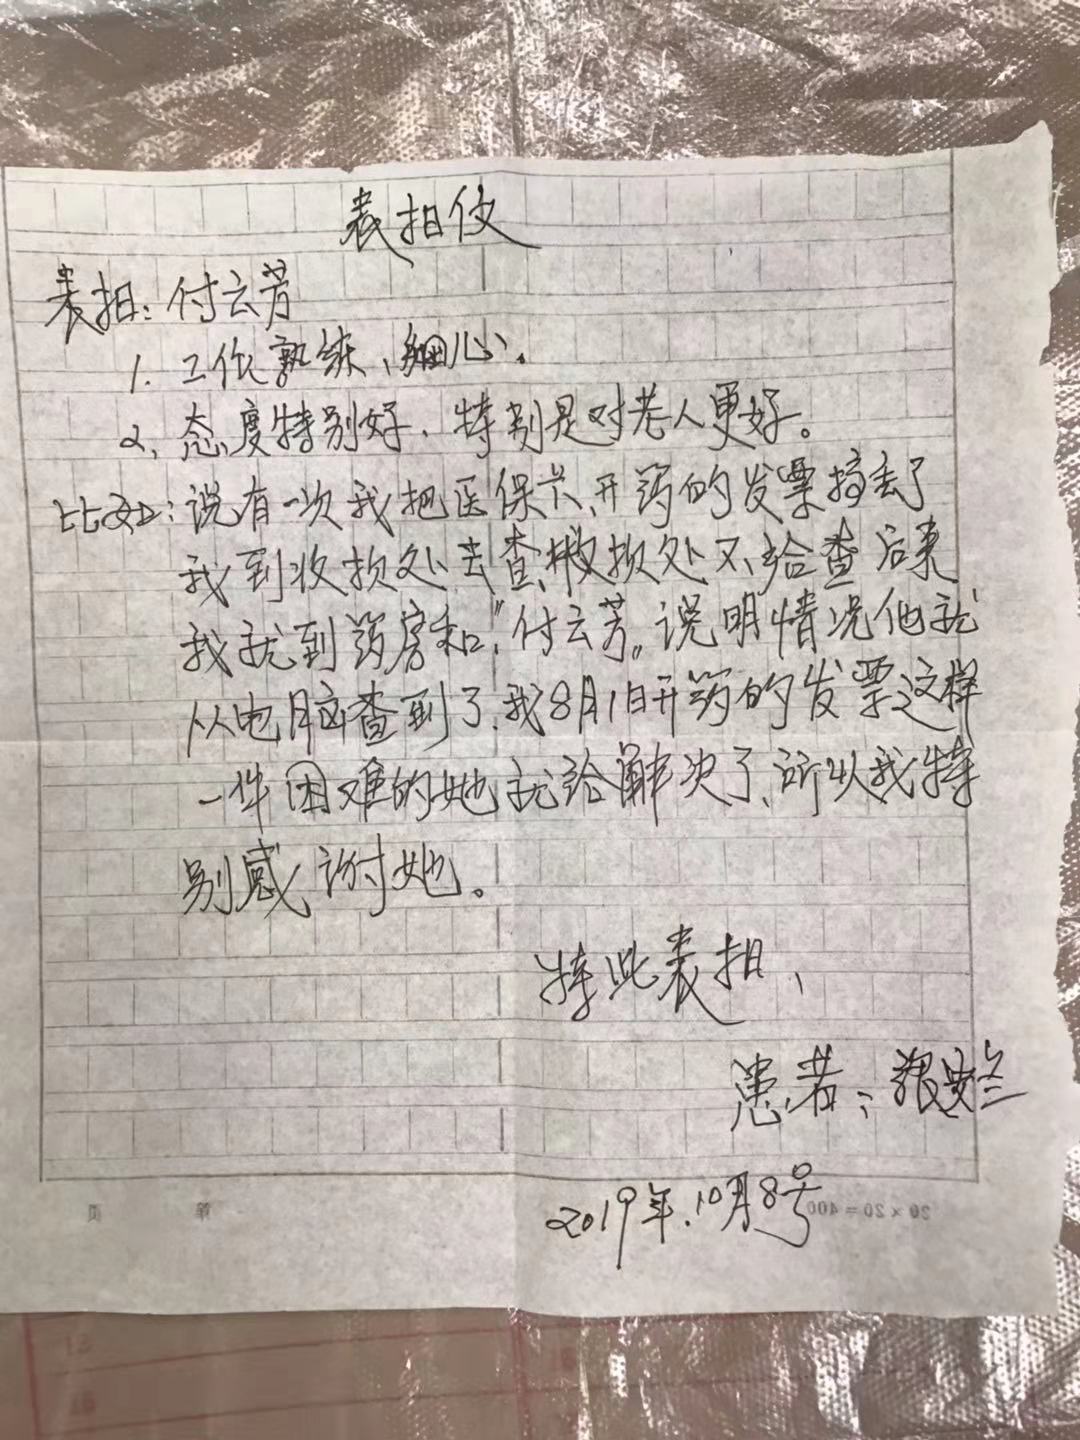 表扬信
表扬：付云芳
1. 工作熟练、细心、
2、态度特别好、特别是对老人更好。
比如：说有一次我把医保卡、开药的发票搞丢了
我到收款处去查、收款处又不给查后来
我就到药房和“付云芳”说明情况他就
从电脑查到了、我8月1日开药的发票这样
一件困难的她就给解决了、所以我特
别感谢她。
特此表扬、
患者：张
2019年.10月8号
20×20＝400
第 页